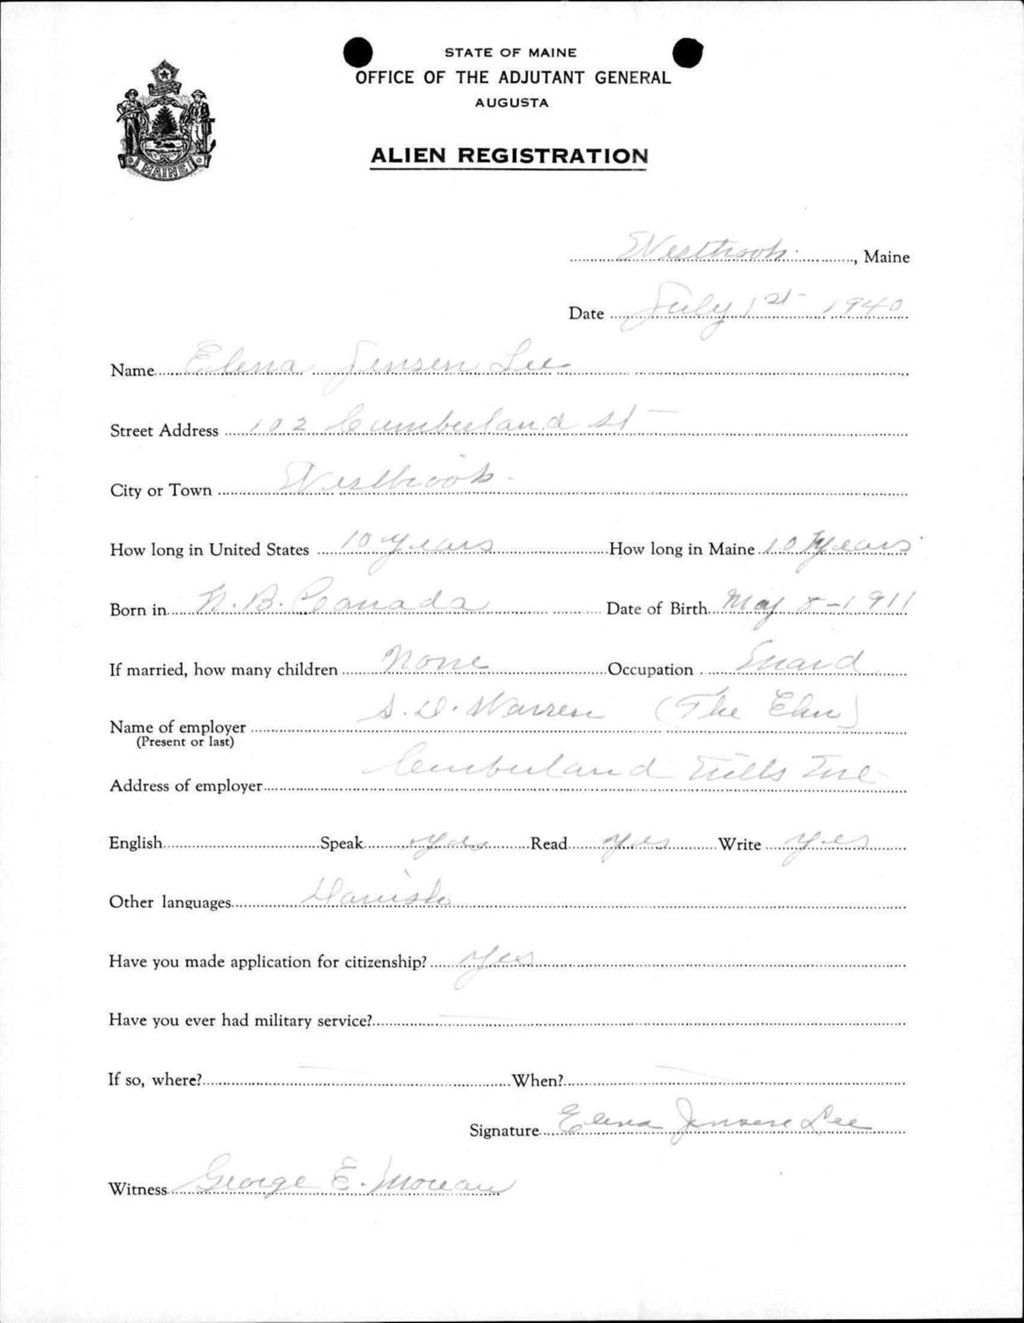 STATE OF MAINE
OFFICE OF THE ADJUTANT GENERAL
AUGUSTA
ALIEN REGISTRATION
MAINE
Westbrook, Maine
Date July 1st - 1940
Name Elena Jensen Lee
Street Address 102 Cumberland St
City or Town Westbrook
How long in United States 10 years How long in Maine 10 years
Born in N. B. Canada Date of Birth May 8 - 1911
If married, how many children None Occupation
Name of employer S. D. Warren (The Elm)
(Present or last)
Address of employer Cumberland Mills Me
English Speak yes Read yes Write yes
Other languages Danish
Have you made application for citizenship? yes
Have you ever had military service?
If so, where? When?
Signature Elena Jensen Lee
Witness George E. Moreau